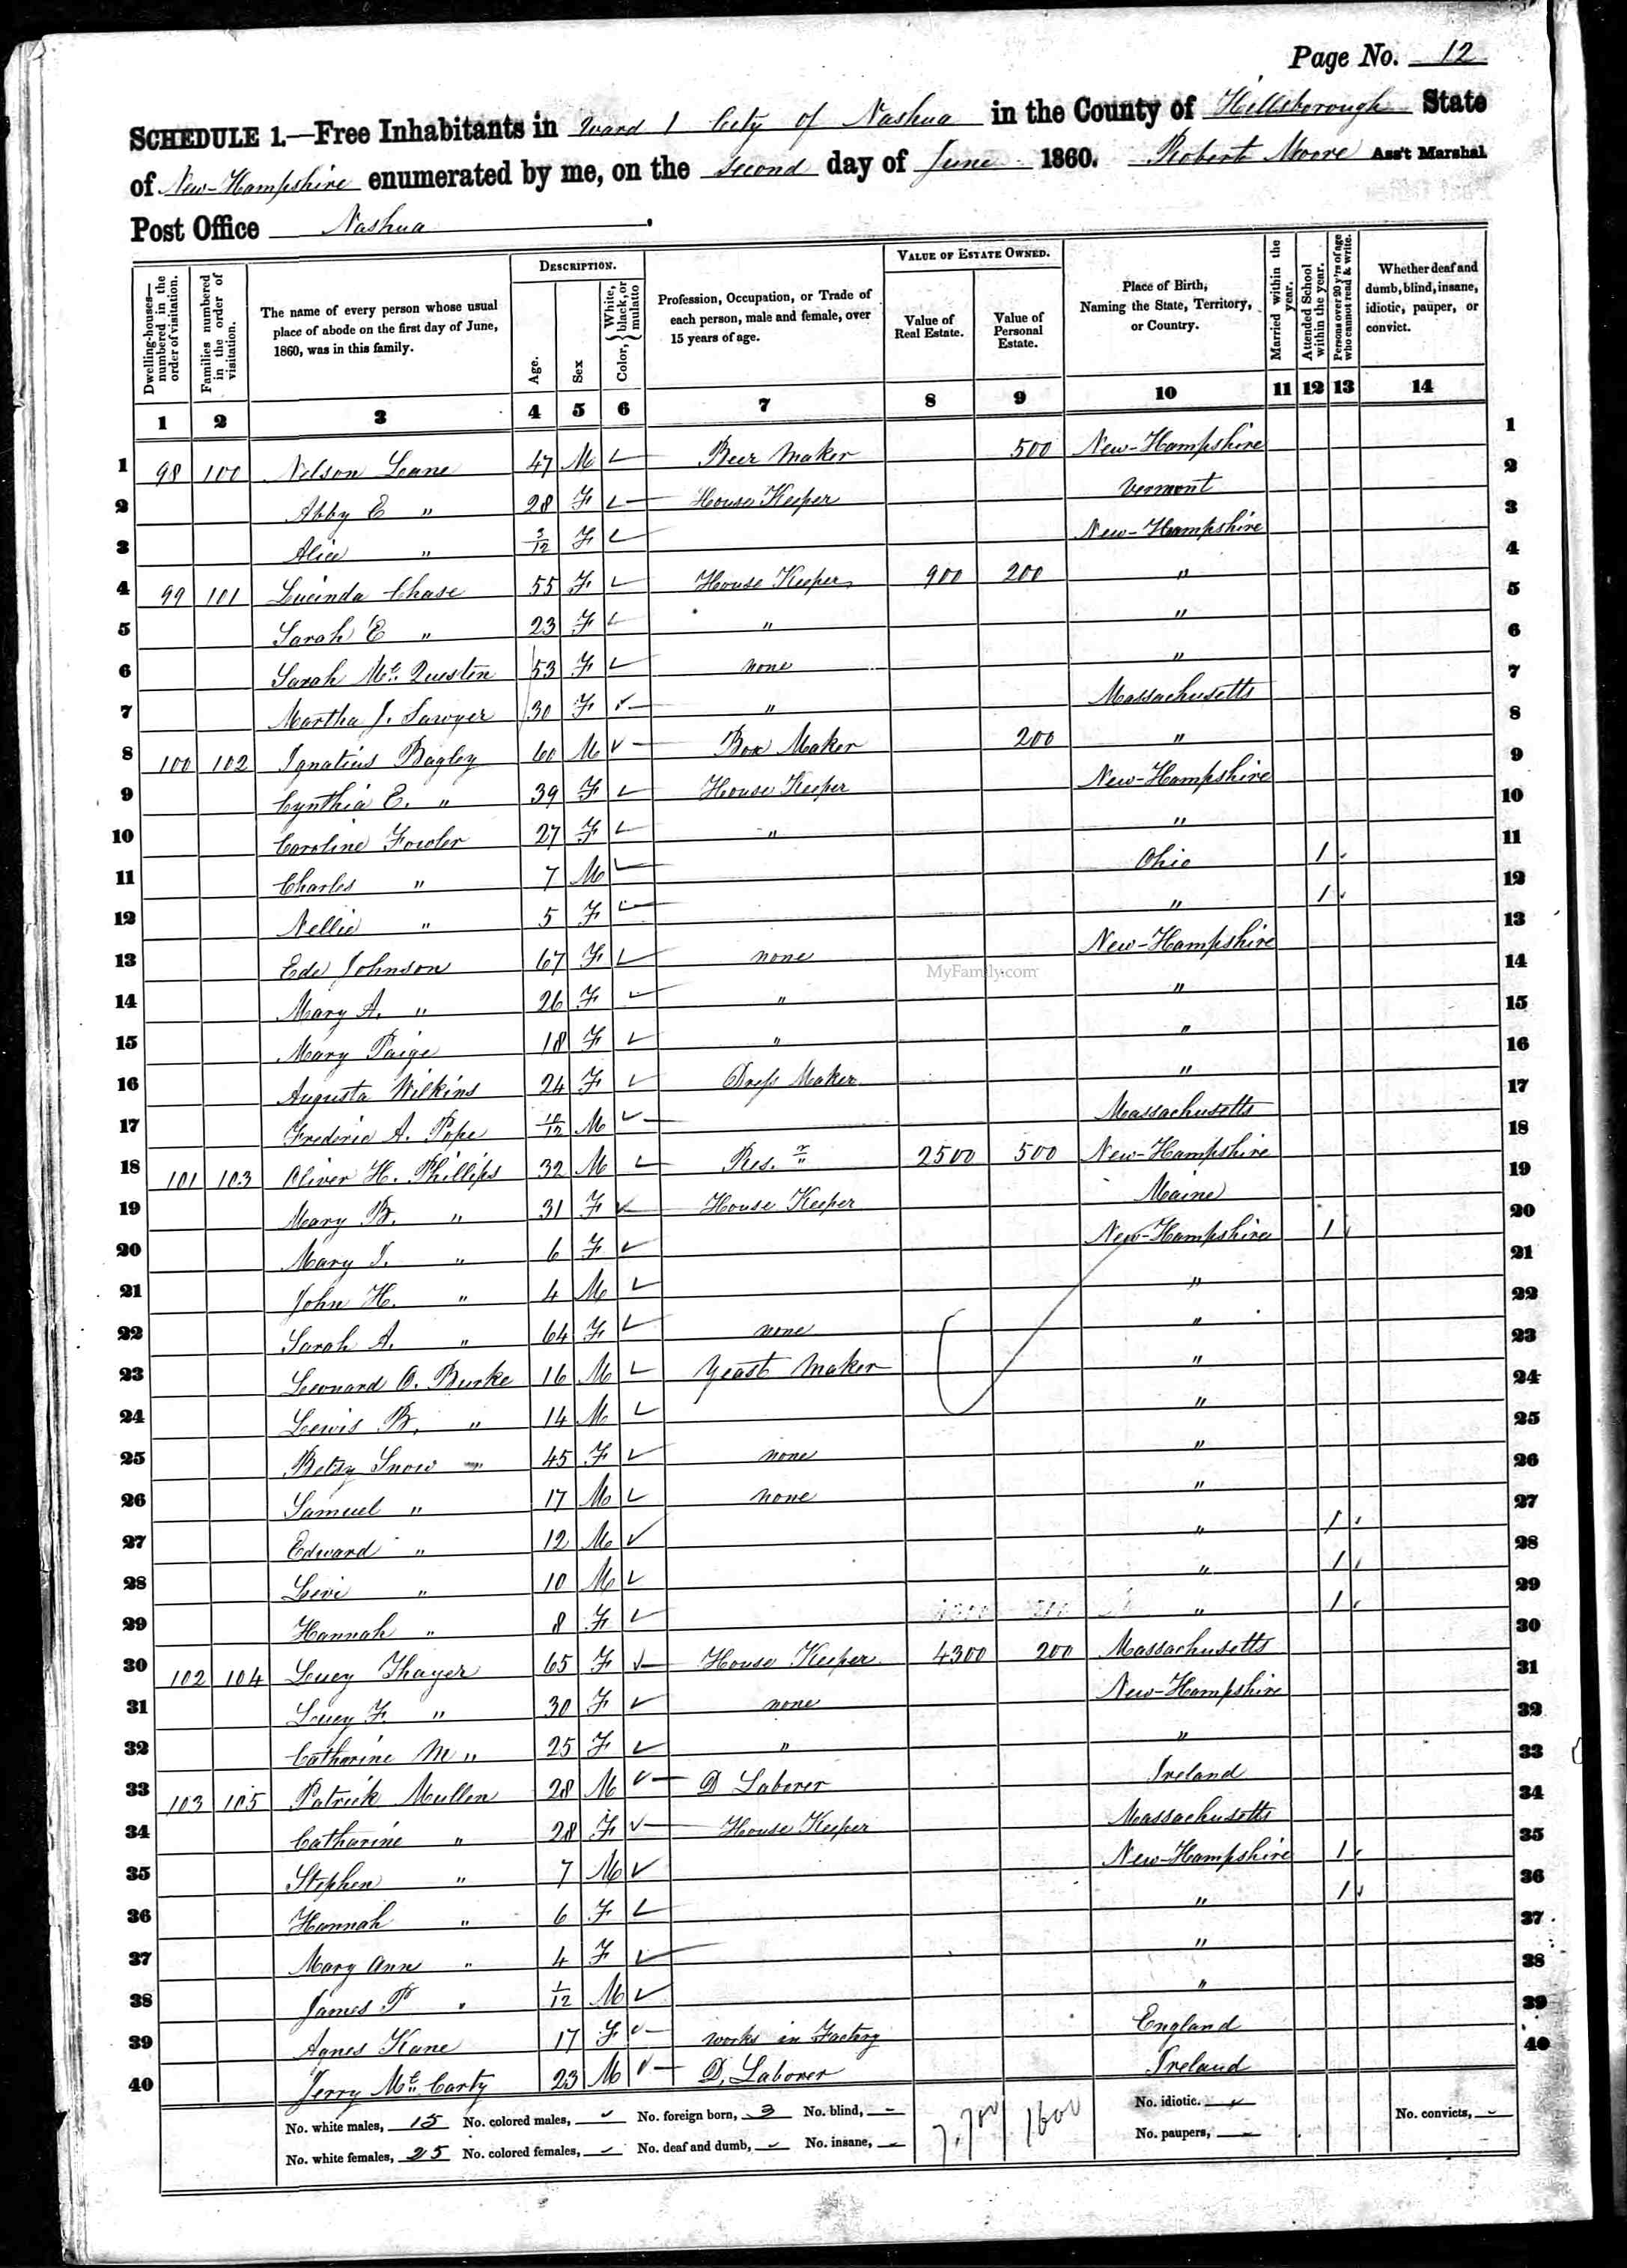 Page No. 12
SCHEDULE 1.—Free Inhabitants in Ward 1 City of Nashua in the County of Hillsborough State
of New-Hampshire enumerated by me, on the second day of June 1860. Robert Moore Ass't Marshal
Post Office Nashua
Dwelling-houses—numbered in the order of visitation. Families numbered in the order of visitation. The name of every person whose usual place of abode on the first day of June, 1860, was in this family. DESCRIPTION. Age. Sex Color, { White, black, or mulatto Profession, Occupation, or Trade of each person, male and female, over 15 years of age. VALUE OF ESTATE OWNED. Value of Real Estate. Value of Personal Estate. Place of Birth, Naming the State, Territory, or Country. Married within the year. Attended School within the year. Persons over 20 y'rs of age who cannot read & write. Whether deaf and dumb, blind, insane, idiotic, pauper, or convict.
1 2 3 4 5 6 7 8 9 10 11 12 13 14
1 98 100 Nelson Leane 47 M Beer Maker 500 New-Hampshire 1
2 Abby E " 28 F House Keeper Vermont 2
3 Alice " 3/12 F New-Hampshire 3
4 99 101 Lucinda Chase 55 F House Keeper 900 200 " 4
5 Sarah E " 23 F " " 5
6 Sarah Mc Questin 53 F none " 6
7 Martha J. Sawyer 30 F " Massachusetts 7
8 100 102 Ignatius Bagley 60 M Box Maker 200 " 8
9 Cynthia E. " 39 F House Keeper New-Hampshire 9
10 Caroline Fowler 27 F " " 10
11 Charles " 7 M Ohio 1 11
12 Nellie " 5 F " 1 12
13 Ede Johnson 67 F none New-Hampshire 13
MyFamily.com
14 Mary A. " 26 F " " 14
15 Mary Paige 18 F " " 15
16 Augusta Wilkins 24 F Dress Maker " 16
17 Frederic A. Pope 10/12 M Massachusetts 17
18 101 103 Oliver H. Phillips 32 M 2500 500 New-Hampshire 18
19 Mary B. " 31 F House Keeper Maine 19
20 Mary J. " 6 F New-Hampshire 1 20
21 John H. " 4 M " 21
22 Sarah A. " 64 F none " 22
23 Leonard O. Burke 16 M Yeast Maker " 23
24 Lewis B. " 14 M " 24
25 Betsy Snow " 45 F none " 25
26 Samuel " 17 M none " 26
27 Edward " 12 M " 1 27
28 Levi " 10 M " 1 28
29 Hannah " 8 F " 1 29
30 102 104 Lucy Thayer 65 F House Keeper 4300 200 Massachusetts 30
31 Lucy F. " 30 F none New-Hampshire 31
32 Catharine M " 25 F " " 32
33 103 105 Patrick Mullen 28 M D Laborer Ireland 33
34 Catharine " 28 F House Keeper Massachusetts 34
35 Stephen " 7 M New-Hampshire 1 35
36 Hannah " 6 F " 1 36
37 Mary Ann " 4 F " 37
38 James P " 1/12 M " 38
39 Agnes Kane 17 F works in Factory England 39
40 Jerry Mc Carty 23 M D. Laborer Ireland 40
No. white males, 15 No. colored males, No. foreign born, 3 No. blind, 7,700 1600 No. idiotic. No. convicts,
No. white females, 25 No. colored females, No. deaf and dumb, No. insane, No. paupers,